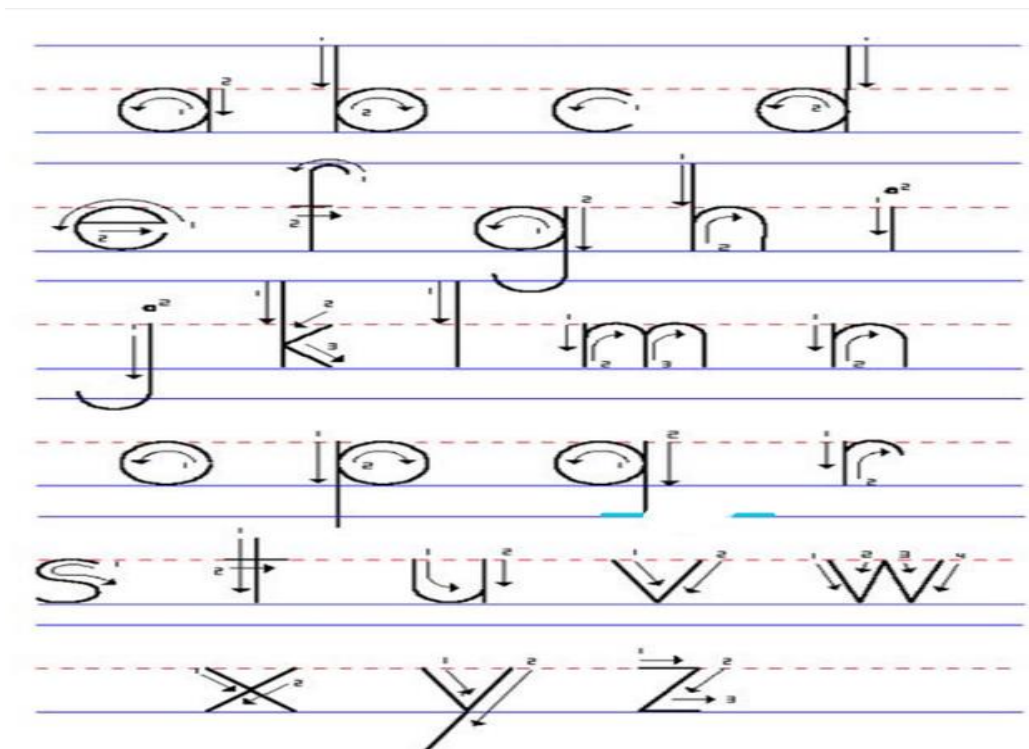 a b c d
e f g h i
j k l m n
o p q r
s t u v w
x y z